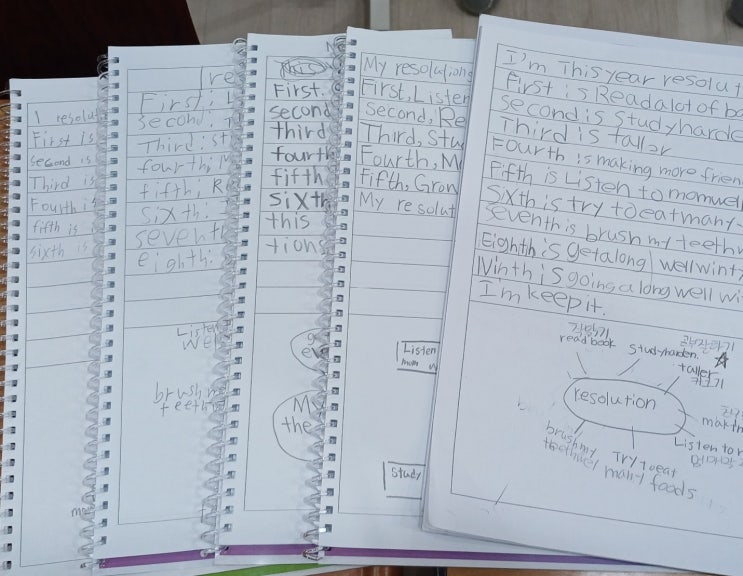 I resolu
First is
Second is
Third is
Fourth is
fifth is
sixth is
First:
second:
Third: st
fourth: M
fifth: Re
sixth:
seventh
eighth:
Listen
well
brush my
teeth
This
First.
second
third
fourth
fifth
sixth
this
tions
My
the
My resolutions
First, Listen
Second, Re
Third, Stu
Fourth, M
Fifth, Gron
My resolut
Listen
mom
Study
I'm This year resolut
First is Readalot of bo
second is studyharde
Third is taller
Fourth is making more frien
Fifth is Listen to momwel
Sixth is try to eat many
seventh is brush my teeth w
Eighth is getalong well wint
Ninth is going along well wi
I'm keep it.
read book
studyharden.
taller
키크기
resolution
makin
Listen to
brush my
teeth well
Try to eat
many foods